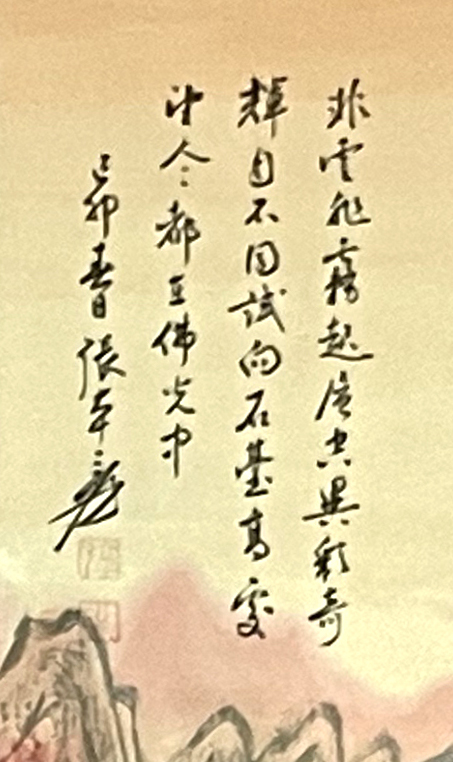 非雲非霧起層空異彩奇
輝自不同試向石臺高處
人々都在佛光中
己卯春日張大千爰